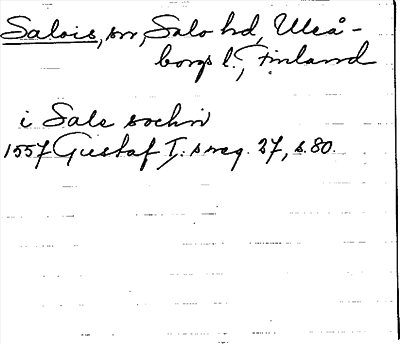 Salois, sn, Salo hd, Uleå-
borgs l., Finland
i Salo sochn
1557 Gustaf I:s reg. 27, s. 80.